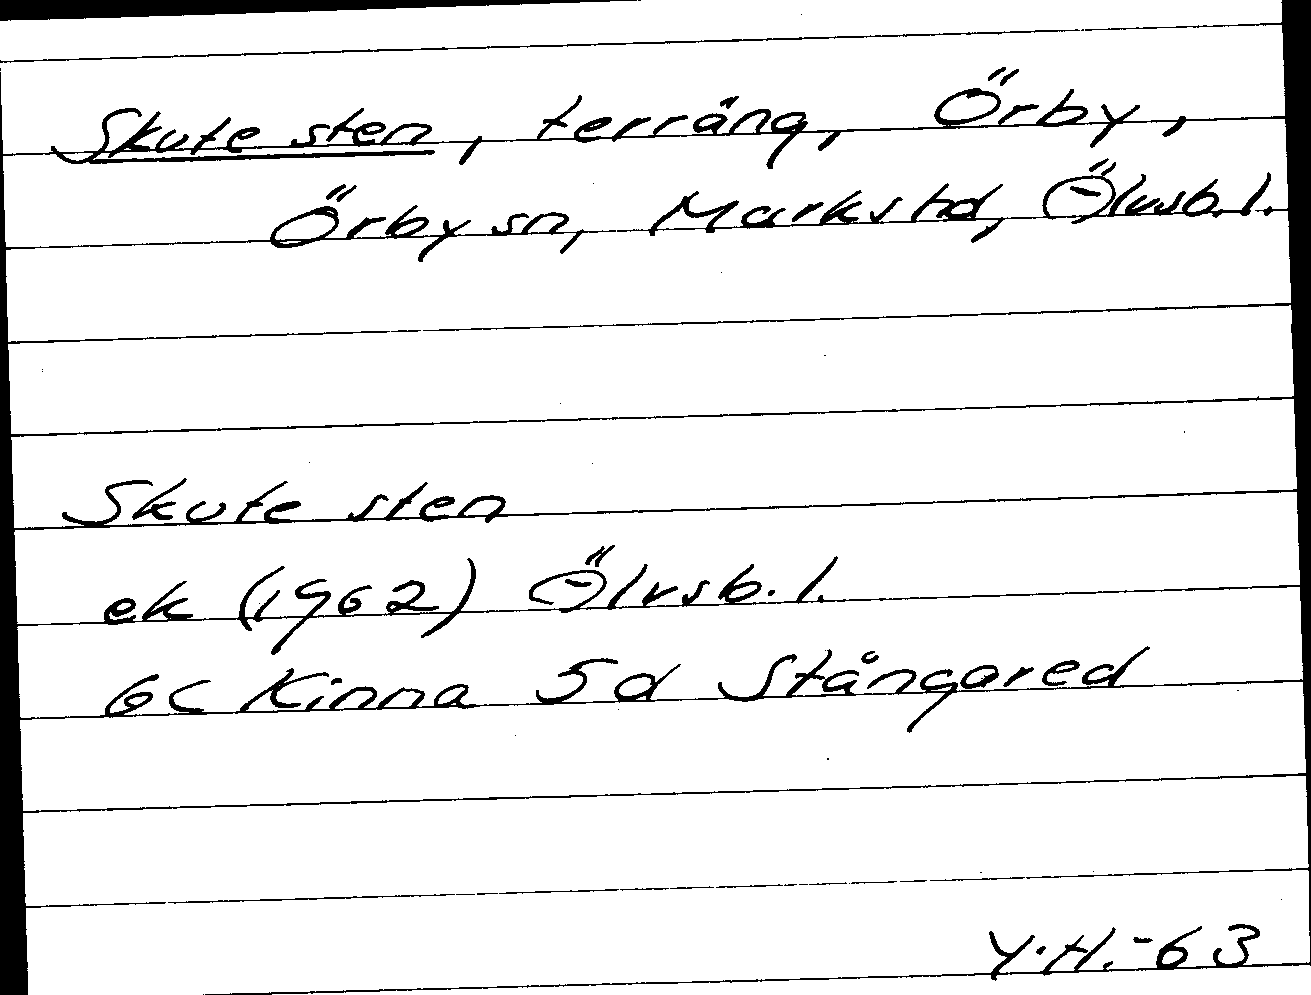 Skute sten, terräng, Örby,
Örby sn, Marks hd, Älvsb. l.
Skute sten
ek (1962) Älvsb. l.
6c Kinna 5d Stångared
Y.H.-63